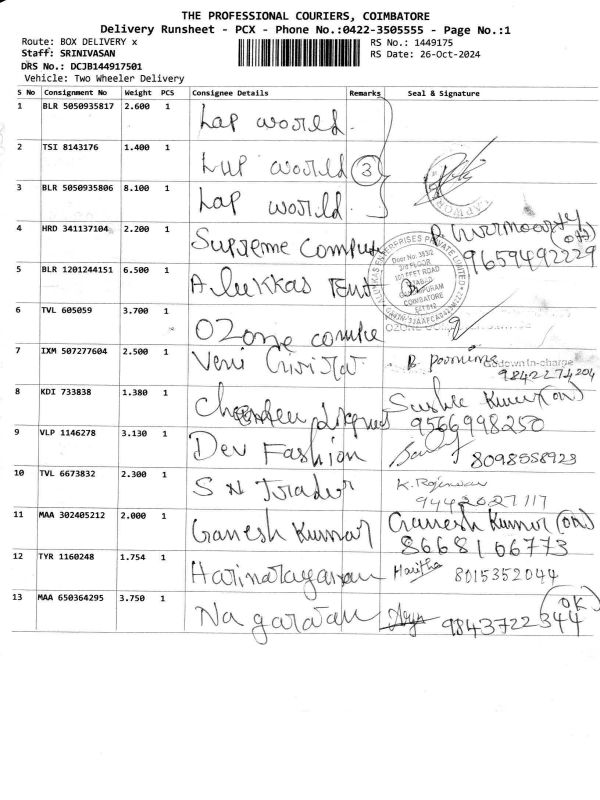 THE PROFESSIONAL COURIERS, COIMBATORE
Delivery Runsheet - PCX - Phone No.:0422-3505555 - Page No.:1
Route: BOX DELIVERY x
RS No.: 1449175
Staff: SRINIVASAN
RS Date: 26-Oct-2024
DRS No.: DCJB144917501
Vehicle: Two Wheeler Delivery
S No Consignment No Weight PCS Consignee Details Remarks Seal & Signature
1 BLR 5050935817 2.600 1 Lap world
2 TSI 8143176 1.400 1 Lap world 3
3 BLR 5050935806 8.100 1 Lap world
4 HRD 341137104 2.200 1 Supreme Compute 9659492229
5 BLR 1201244151 6.500 1 Alukkas
3rd FLOOR
100 FEET ROAD
COIMBATORE
6 TVL 605059 3.700 1 Ozone
7 IXM 507277604 2.500 1 Veni B. Poornima
Godown In-charge
9842274204
8 KDI 733838 1.380 1
9566998250
9 VLP 1146278 3.130 1 Dev Fashion 8098558923
10 TVL 6673832 2.300 1 S N Trader
9442627117
11 MAA 302405212 2.000 1 Ganesh Kumar Ganesh Kumar
8668166773
12 TYR 1160248 1.754 1 Harinarayanan Haritha 8015352044
13 MAA 650364295 3.750 1 Nagarajan OK
9843722344